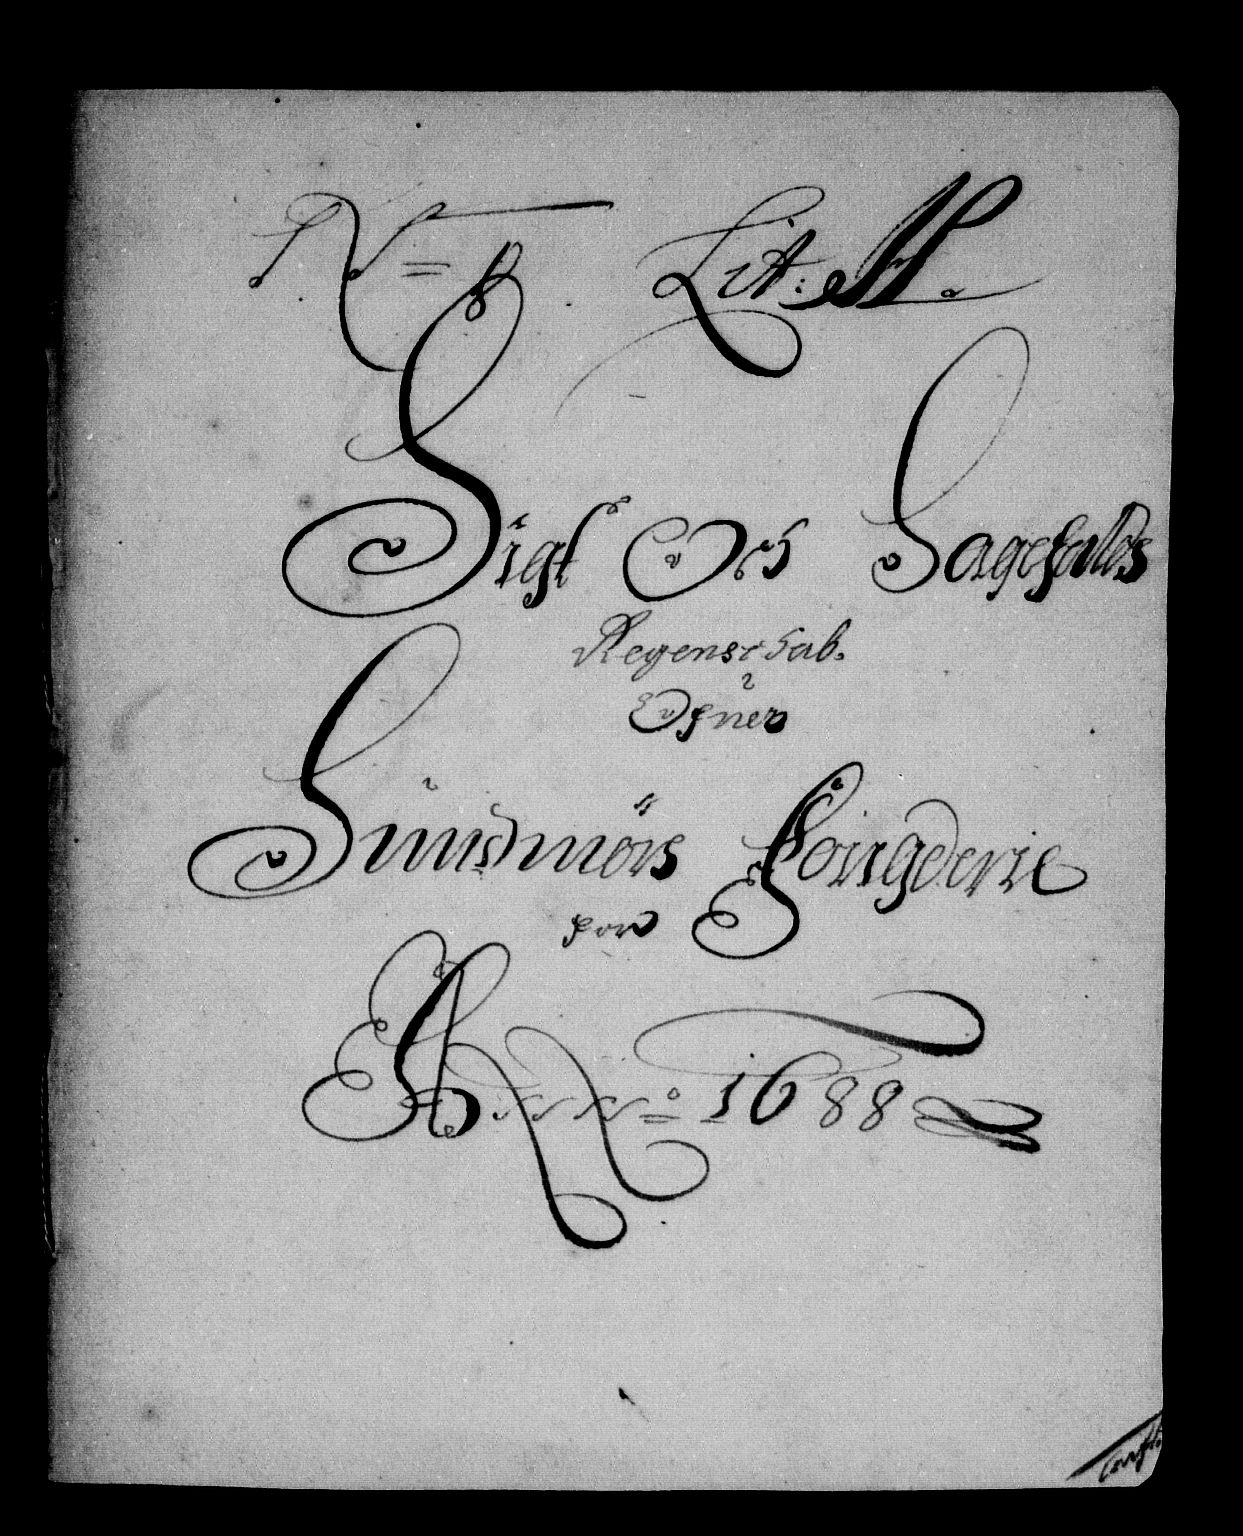 N = 8 Lit: M.
Sigt Och Sagefaldes
Regenschab.
Ofuer
Sundmörs Fougderie
for
Anno 1688